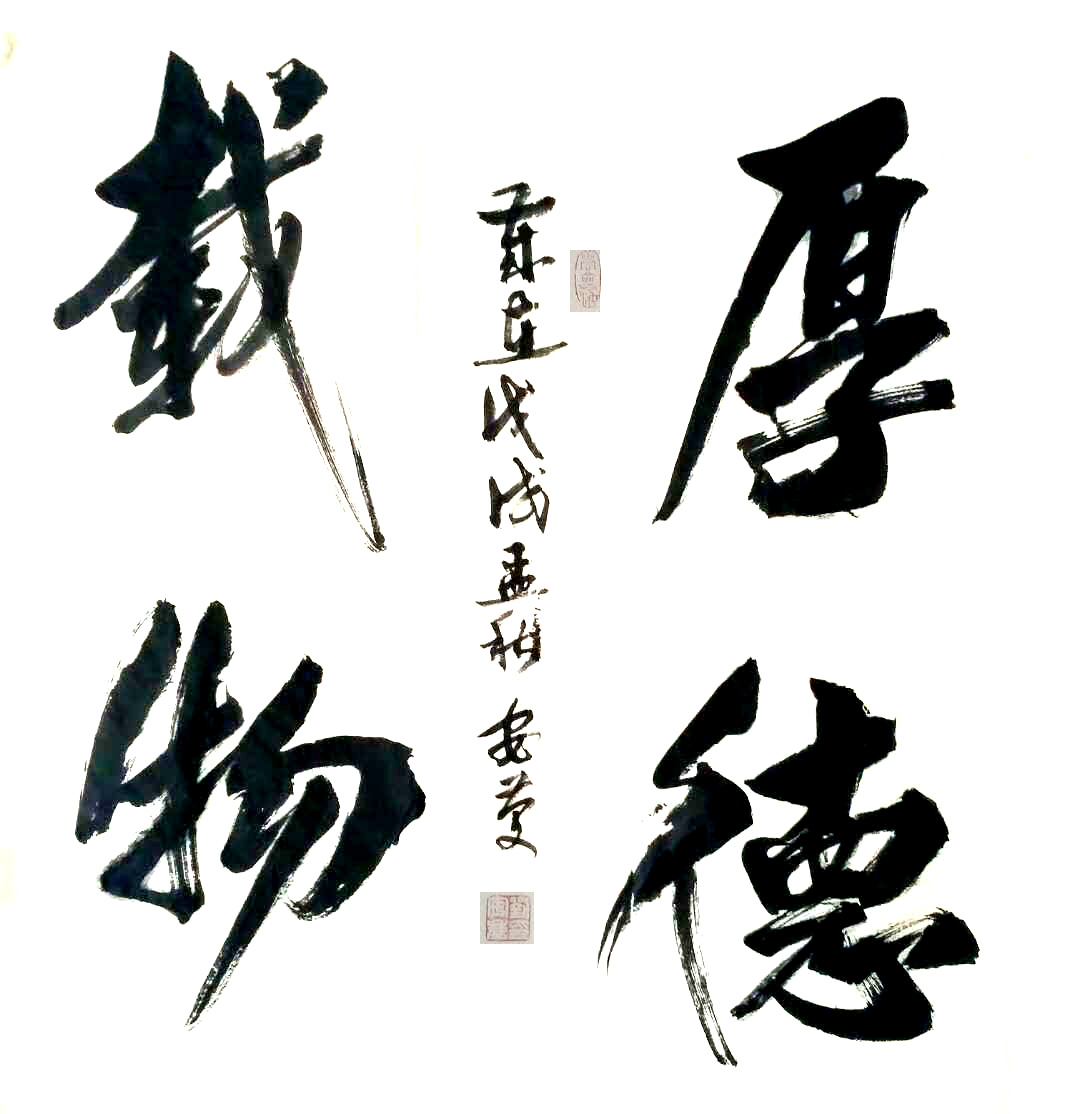 厚德
載物
歲在戊戌孟秋